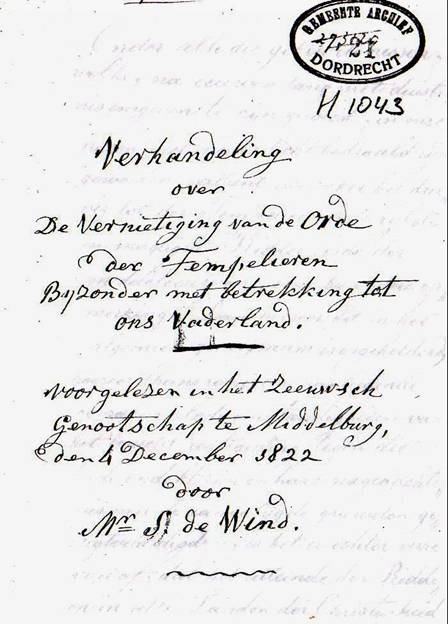 GEMEENTE ARCHIEF
DORDRECHT
H 1043
Verhandeling
over
De Vernietiging van de Orde
der Tempelieren
Byzonder met betrekking tot
ons Vaderland.
voorgelezen in het Zeeuwsch
Genootschap te Middelburg,
den 4 December 1822
door
Mr S. de Wind.